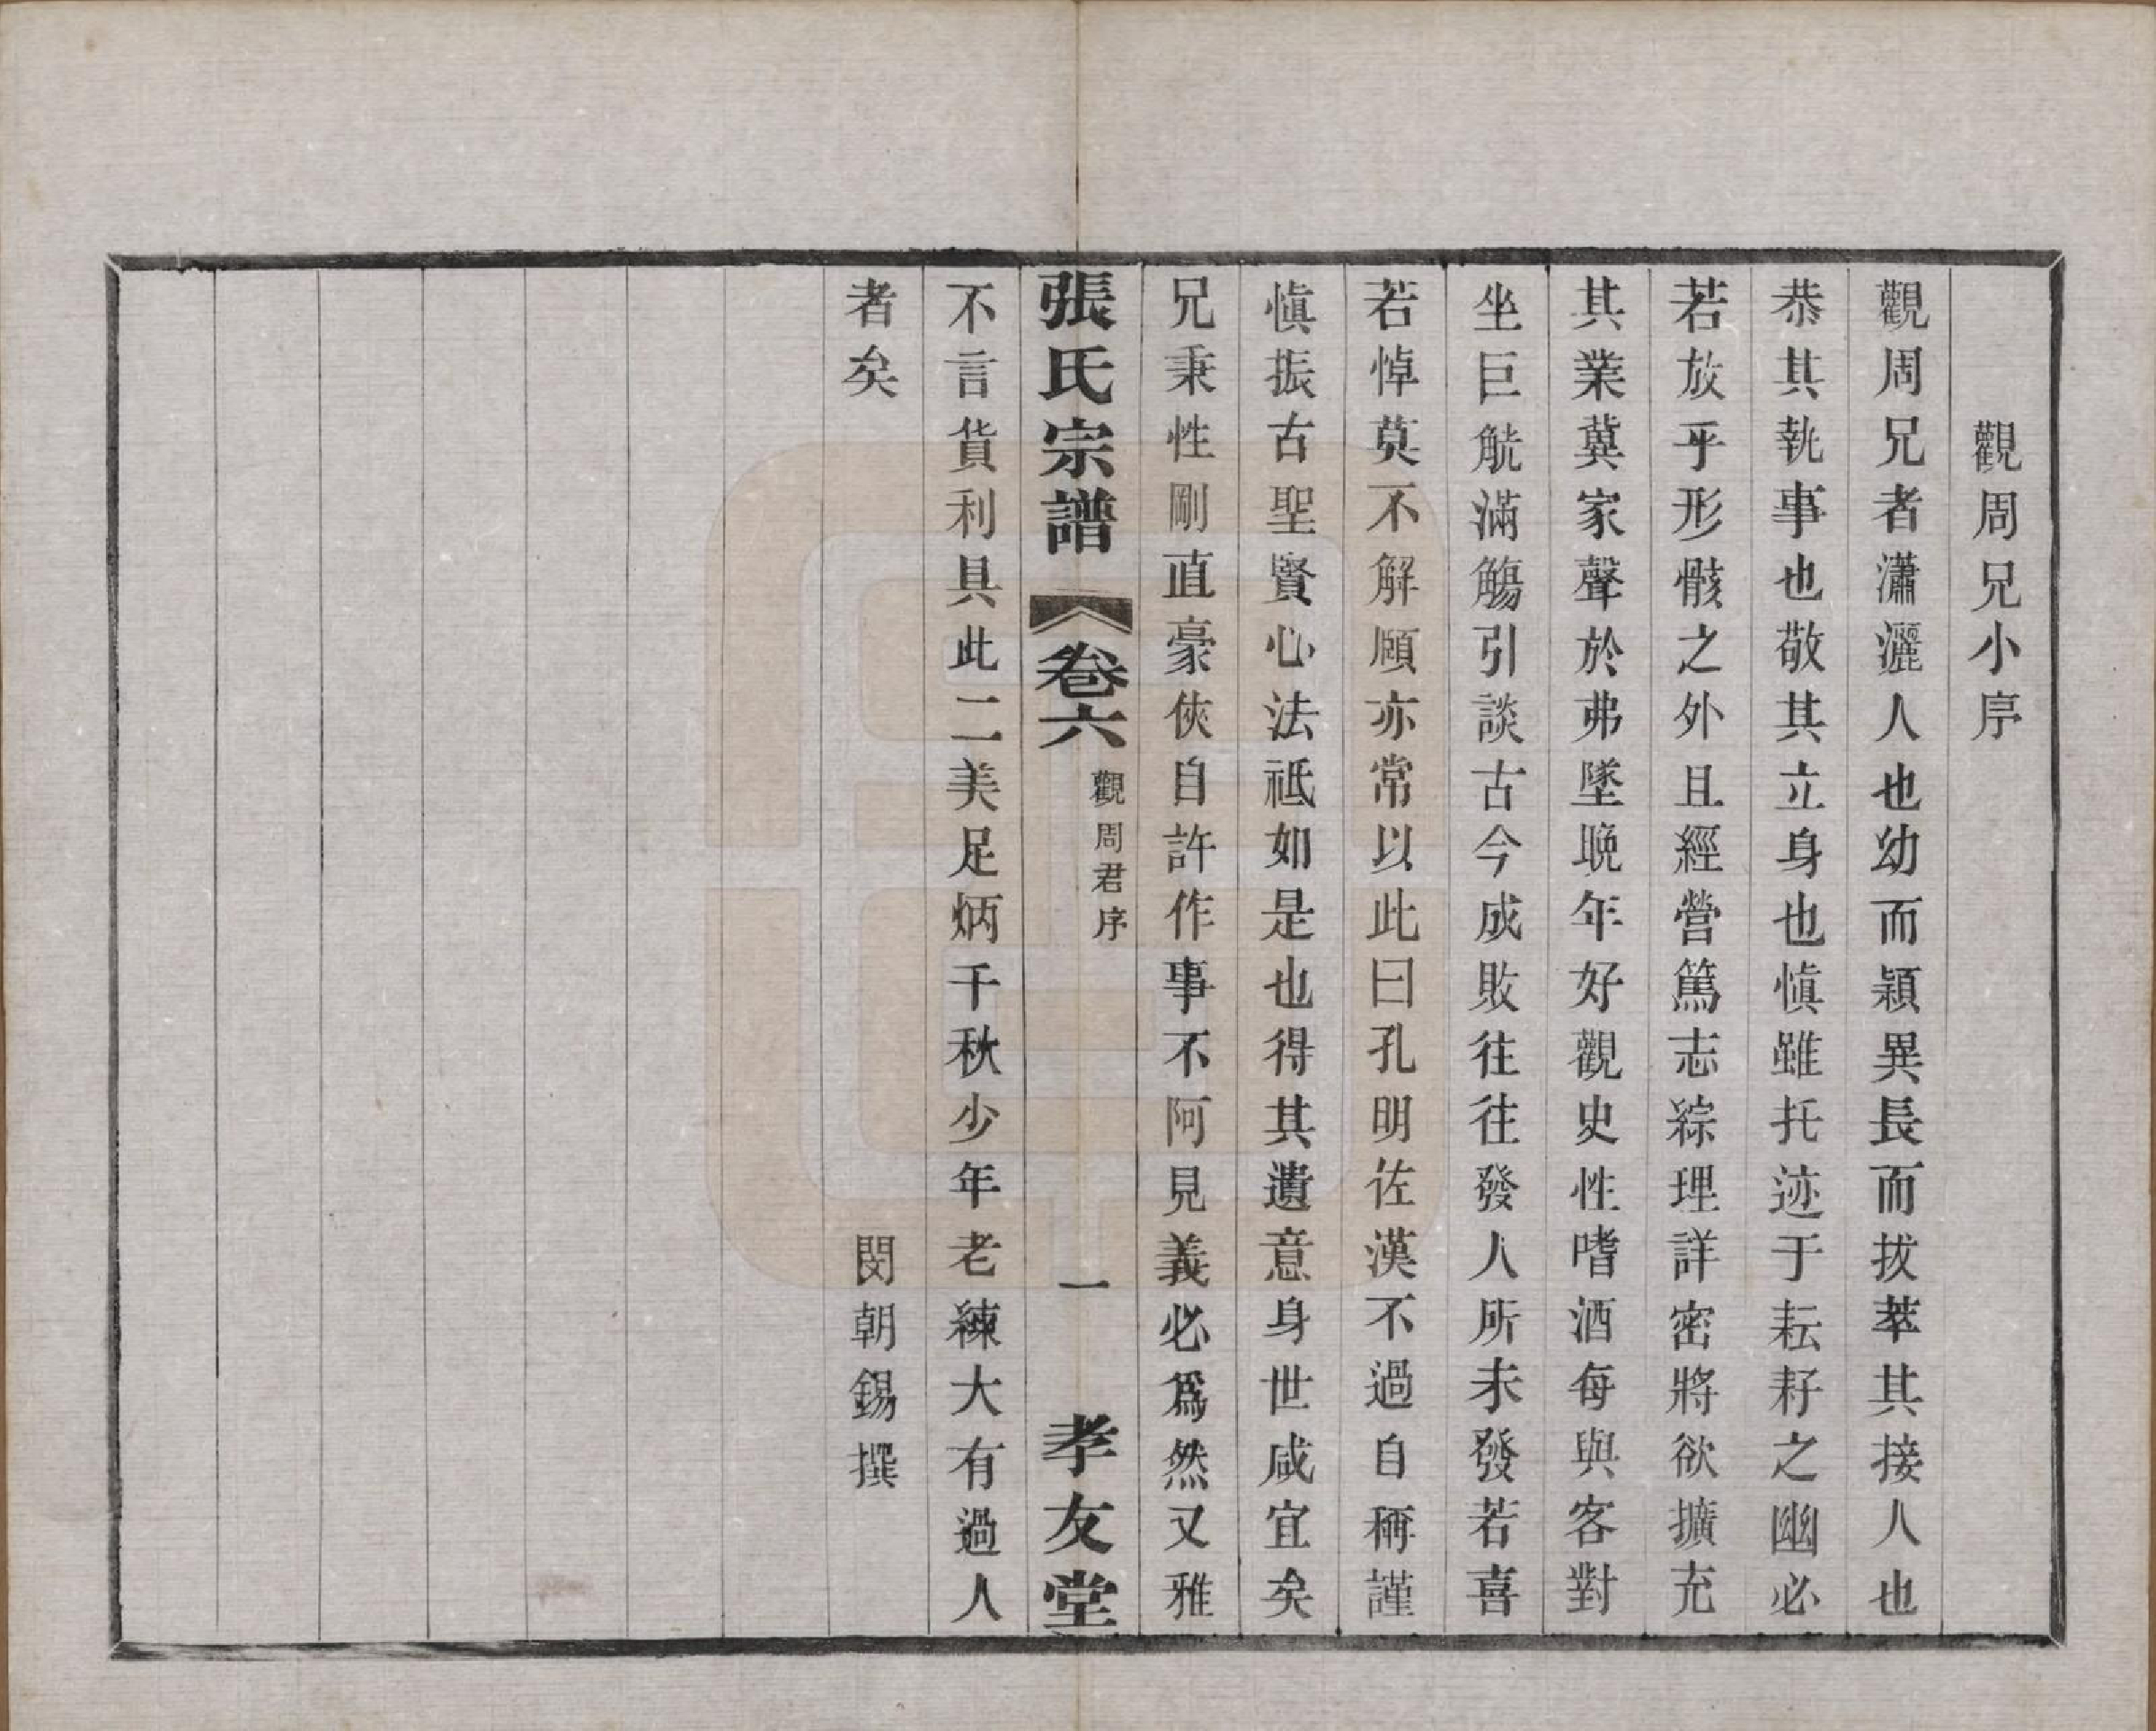 觀周兄小序
觀周兄者瀟灑人也幼而穎異長而拔萃其接人也
恭其執事也敬其立身也慎雖托迹于耘耔之幽必
若放乎形骸之外且經營篤志綜理詳密將欲擴充
其業冀家聲於弗墜晚年好觀史性嗜酒每與客對
坐巨觥滿觴引談古今成敗往往發人所未發若喜
若悼莫不解頤亦常以此曰孔明佐漢不過自稱謹
慎振古聖賢心法祗如是也得其遺意身世咸宜矣
兄秉性剛直豪俠自許作事不阿見義必爲然又雅
張氏宗譜 卷六 觀周君序 一 孝友堂
不言貨利具此二美足炳千秋少年老練大有過人
者矣
閔朝錫撰